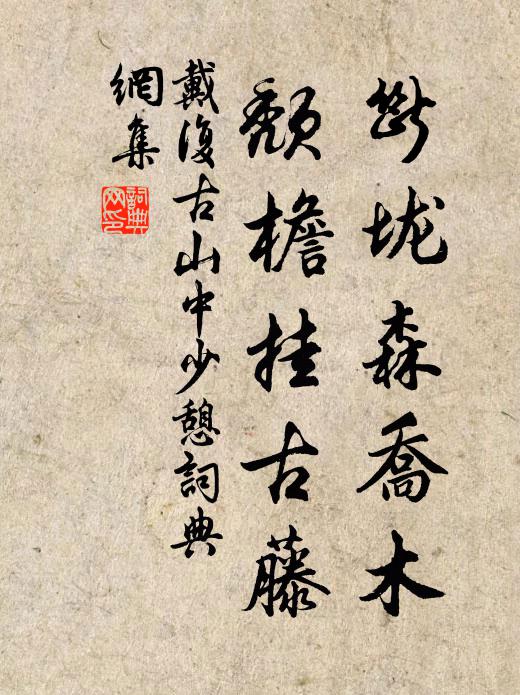 斷壠森喬木
頹檐挂古藤
戴復古山中少憩詞典
網集
詞典網印